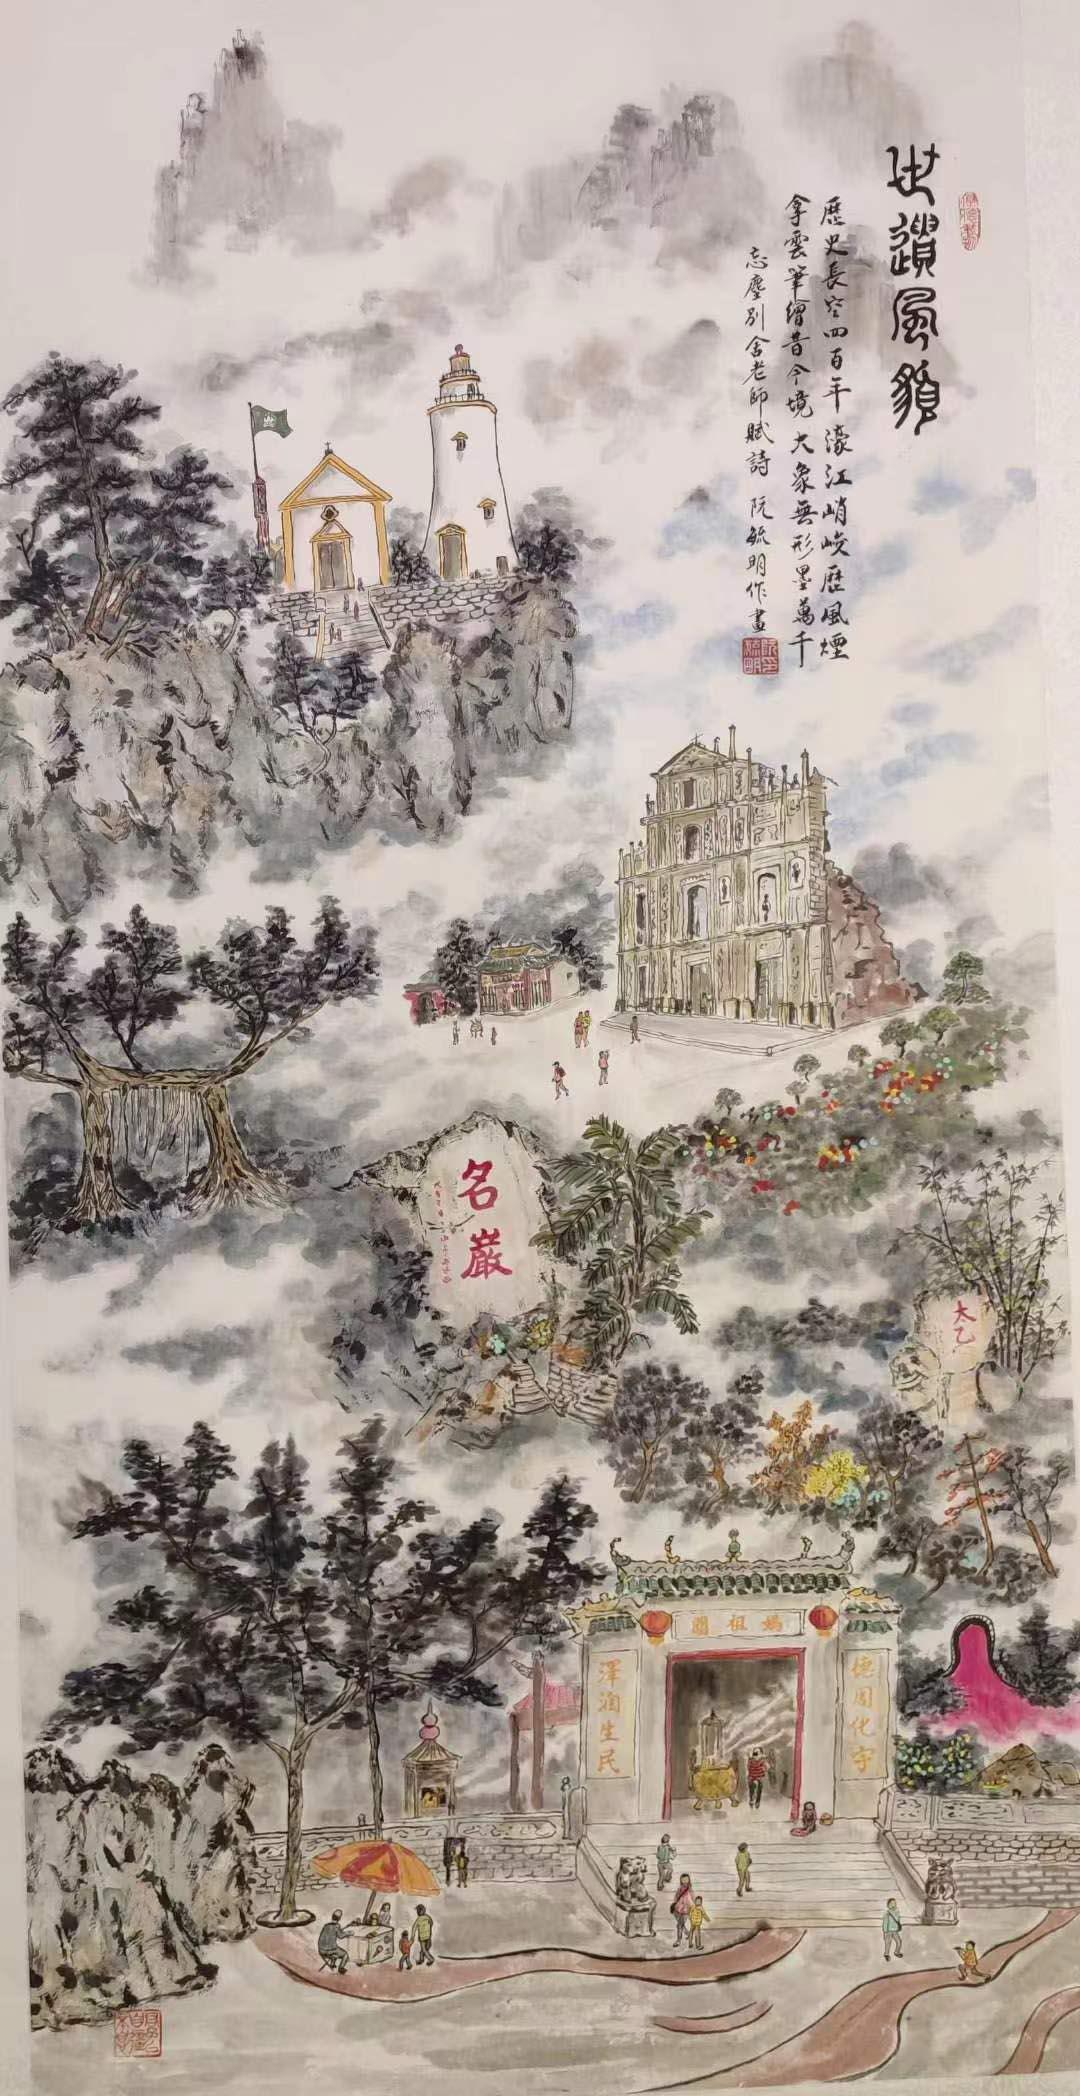 世遺風貌
歷史長空四百年濠江峭峻歷風煙
拿雲筆繪昔今境大象無形墨萬千
忘塵別舍老師賦詩 阮毓明作畫
名巖
太乙
媽祖閣
德周化宇
澤潤生民